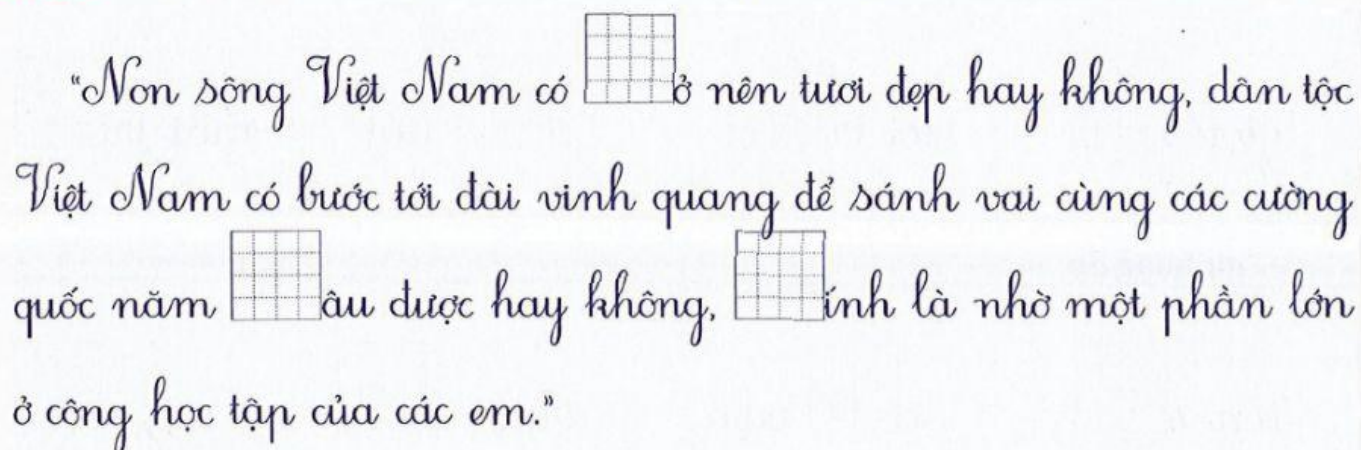 "Non sông Việt Nam có ở nên tươi đẹp hay không, dân tộc
Việt Nam có bước tới đài vinh quang để sánh vai cùng các cường
quốc năm âu được hay không, ính là nhờ một phần lớn
ở công học tập của các em."